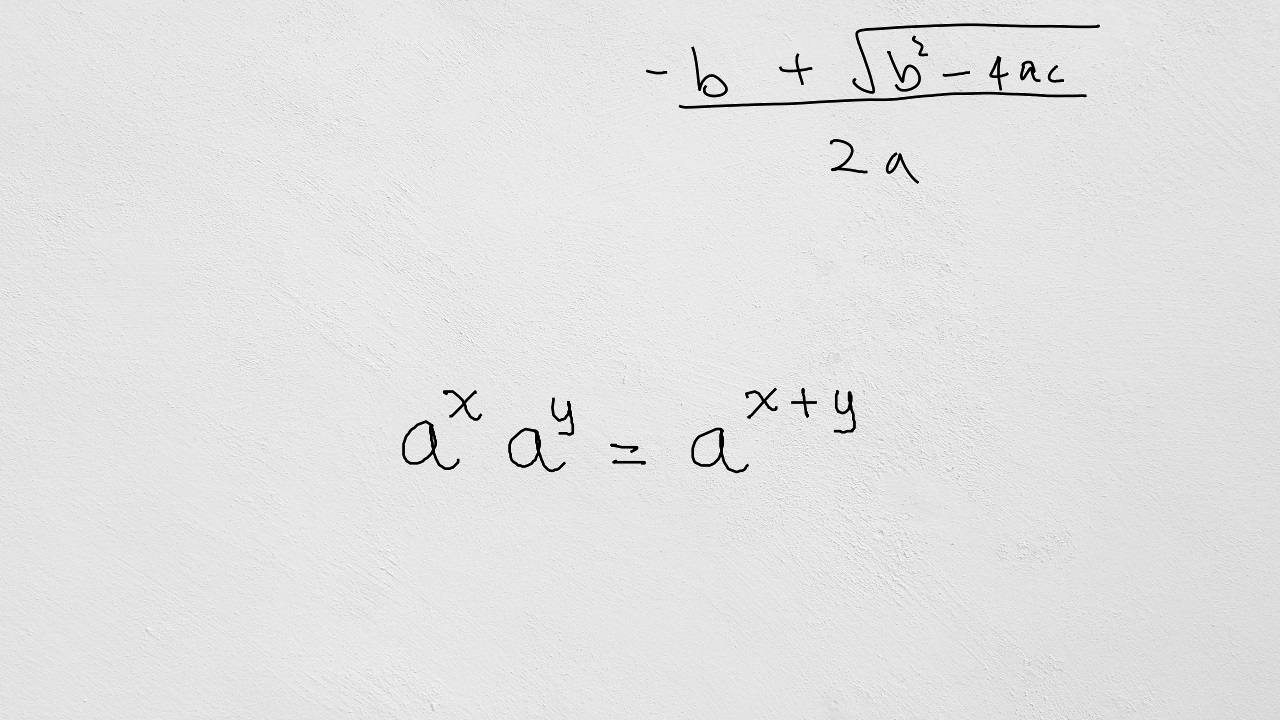 \frac{-b + \sqrt{b^2 - 4ac}}{2a}
a^x a^y = a^{x+y}